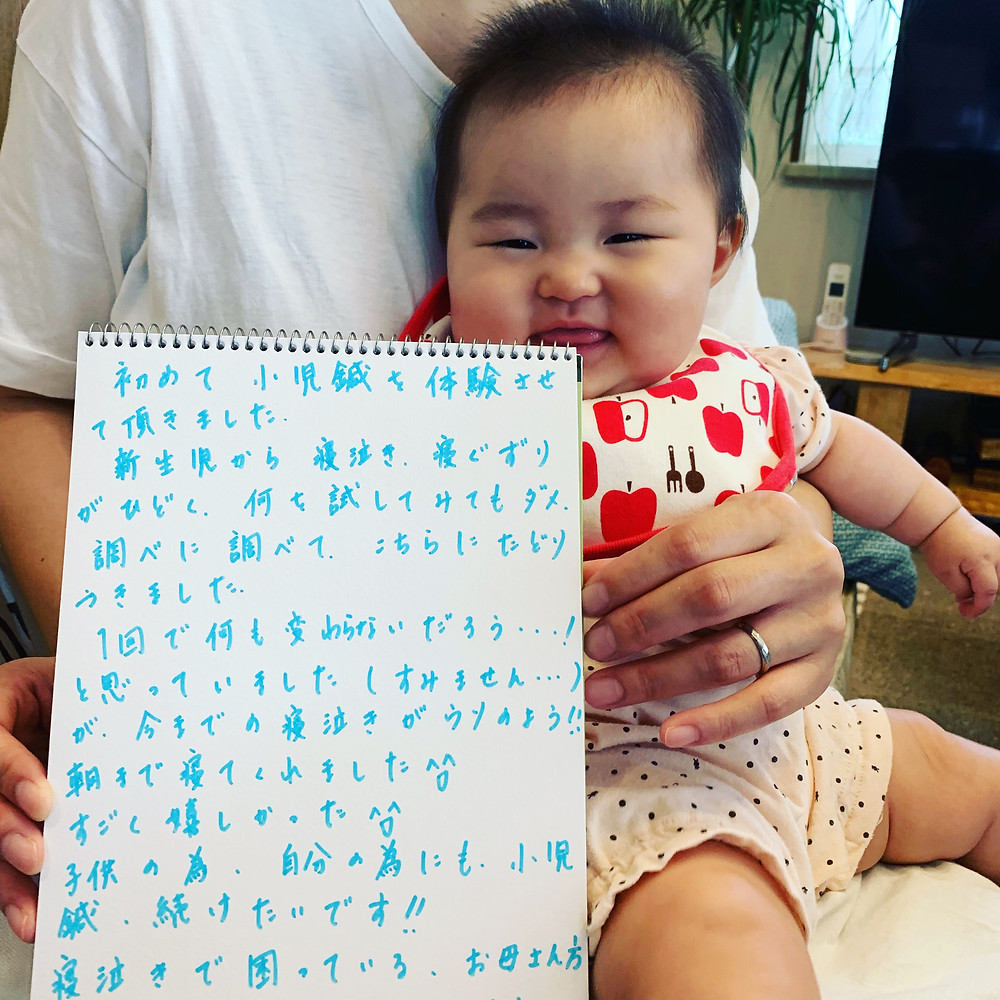 初めて 小児鍼を体験させ
て頂きました.
新生児から 寝泣き、寝ぐずり
がひどく、何を試してみてもダメ.
調べに調べて、こちらにたどり
つきました.
1回で何も変わらないだろう...!
と思っていました(すみません...)
が、今までの寝泣きがウソのよう!!
朝まで寝てくれました^o^
すごく嬉しかった^o^
子供の為、自分の為にも、小児
鍼、続けたいです!!
寝泣きで困っている、お母さん方